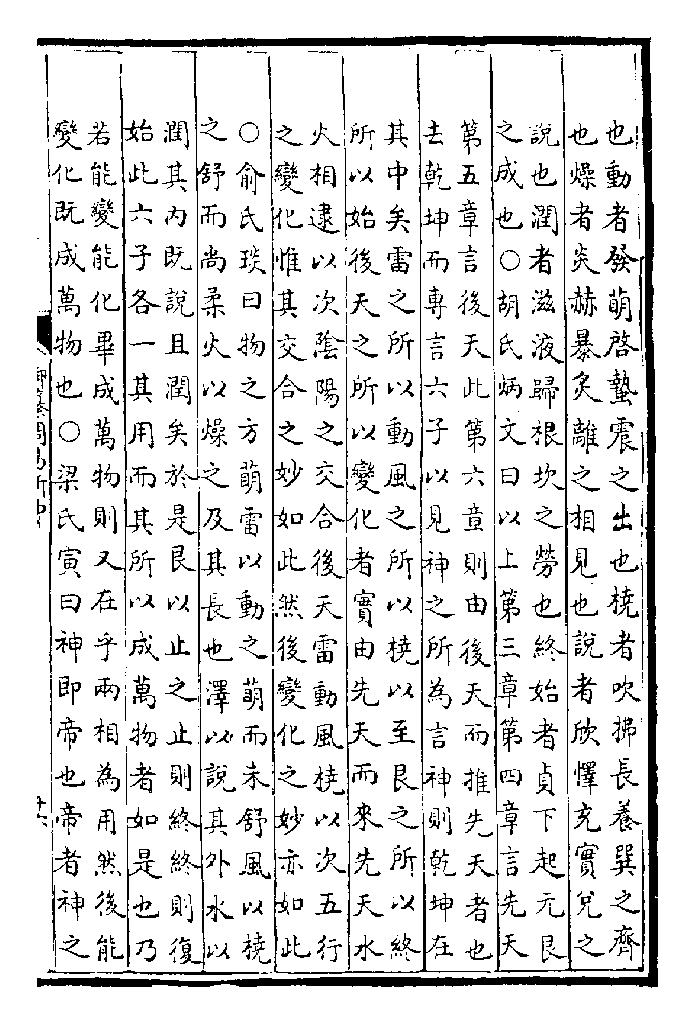 也動者發萌啓蟄震之出也橈者吹拂長養巽之齊
也燥者炎赫暴炙離之相見也說者欣懌充實兌之
說也潤者滋液歸根坎之勞也終始者貞下起元艮
之成也○胡氏炳文曰以上第三章第四章言先天
第五章言後天此第六章則由後天而推先天者也
去乾坤而專言六子以見神之所為言神則乾坤在
其中矣雷之所以動風之所以橈以至艮之所以終
所以始後天之所以變化者實由先天而來先天水
火相逮以次陰陽之交合後天雷動風橈以次五行
之變化惟其交合之妙如此然後變化之妙亦如此
○俞氏琰曰物之方萌雷以動之萌而未舒風以橈
之舒而尚柔火以燥之及其長也澤以說其外水以
潤其內既說且潤矣於是艮以止之止則終終則復
始此六子各一其用而其所以成萬物者如是也乃
若能變能化畢成萬物則又在乎兩相為用然後能
變化既成萬物也○梁氏寅曰神即帝也帝者神之
御纂周易折中